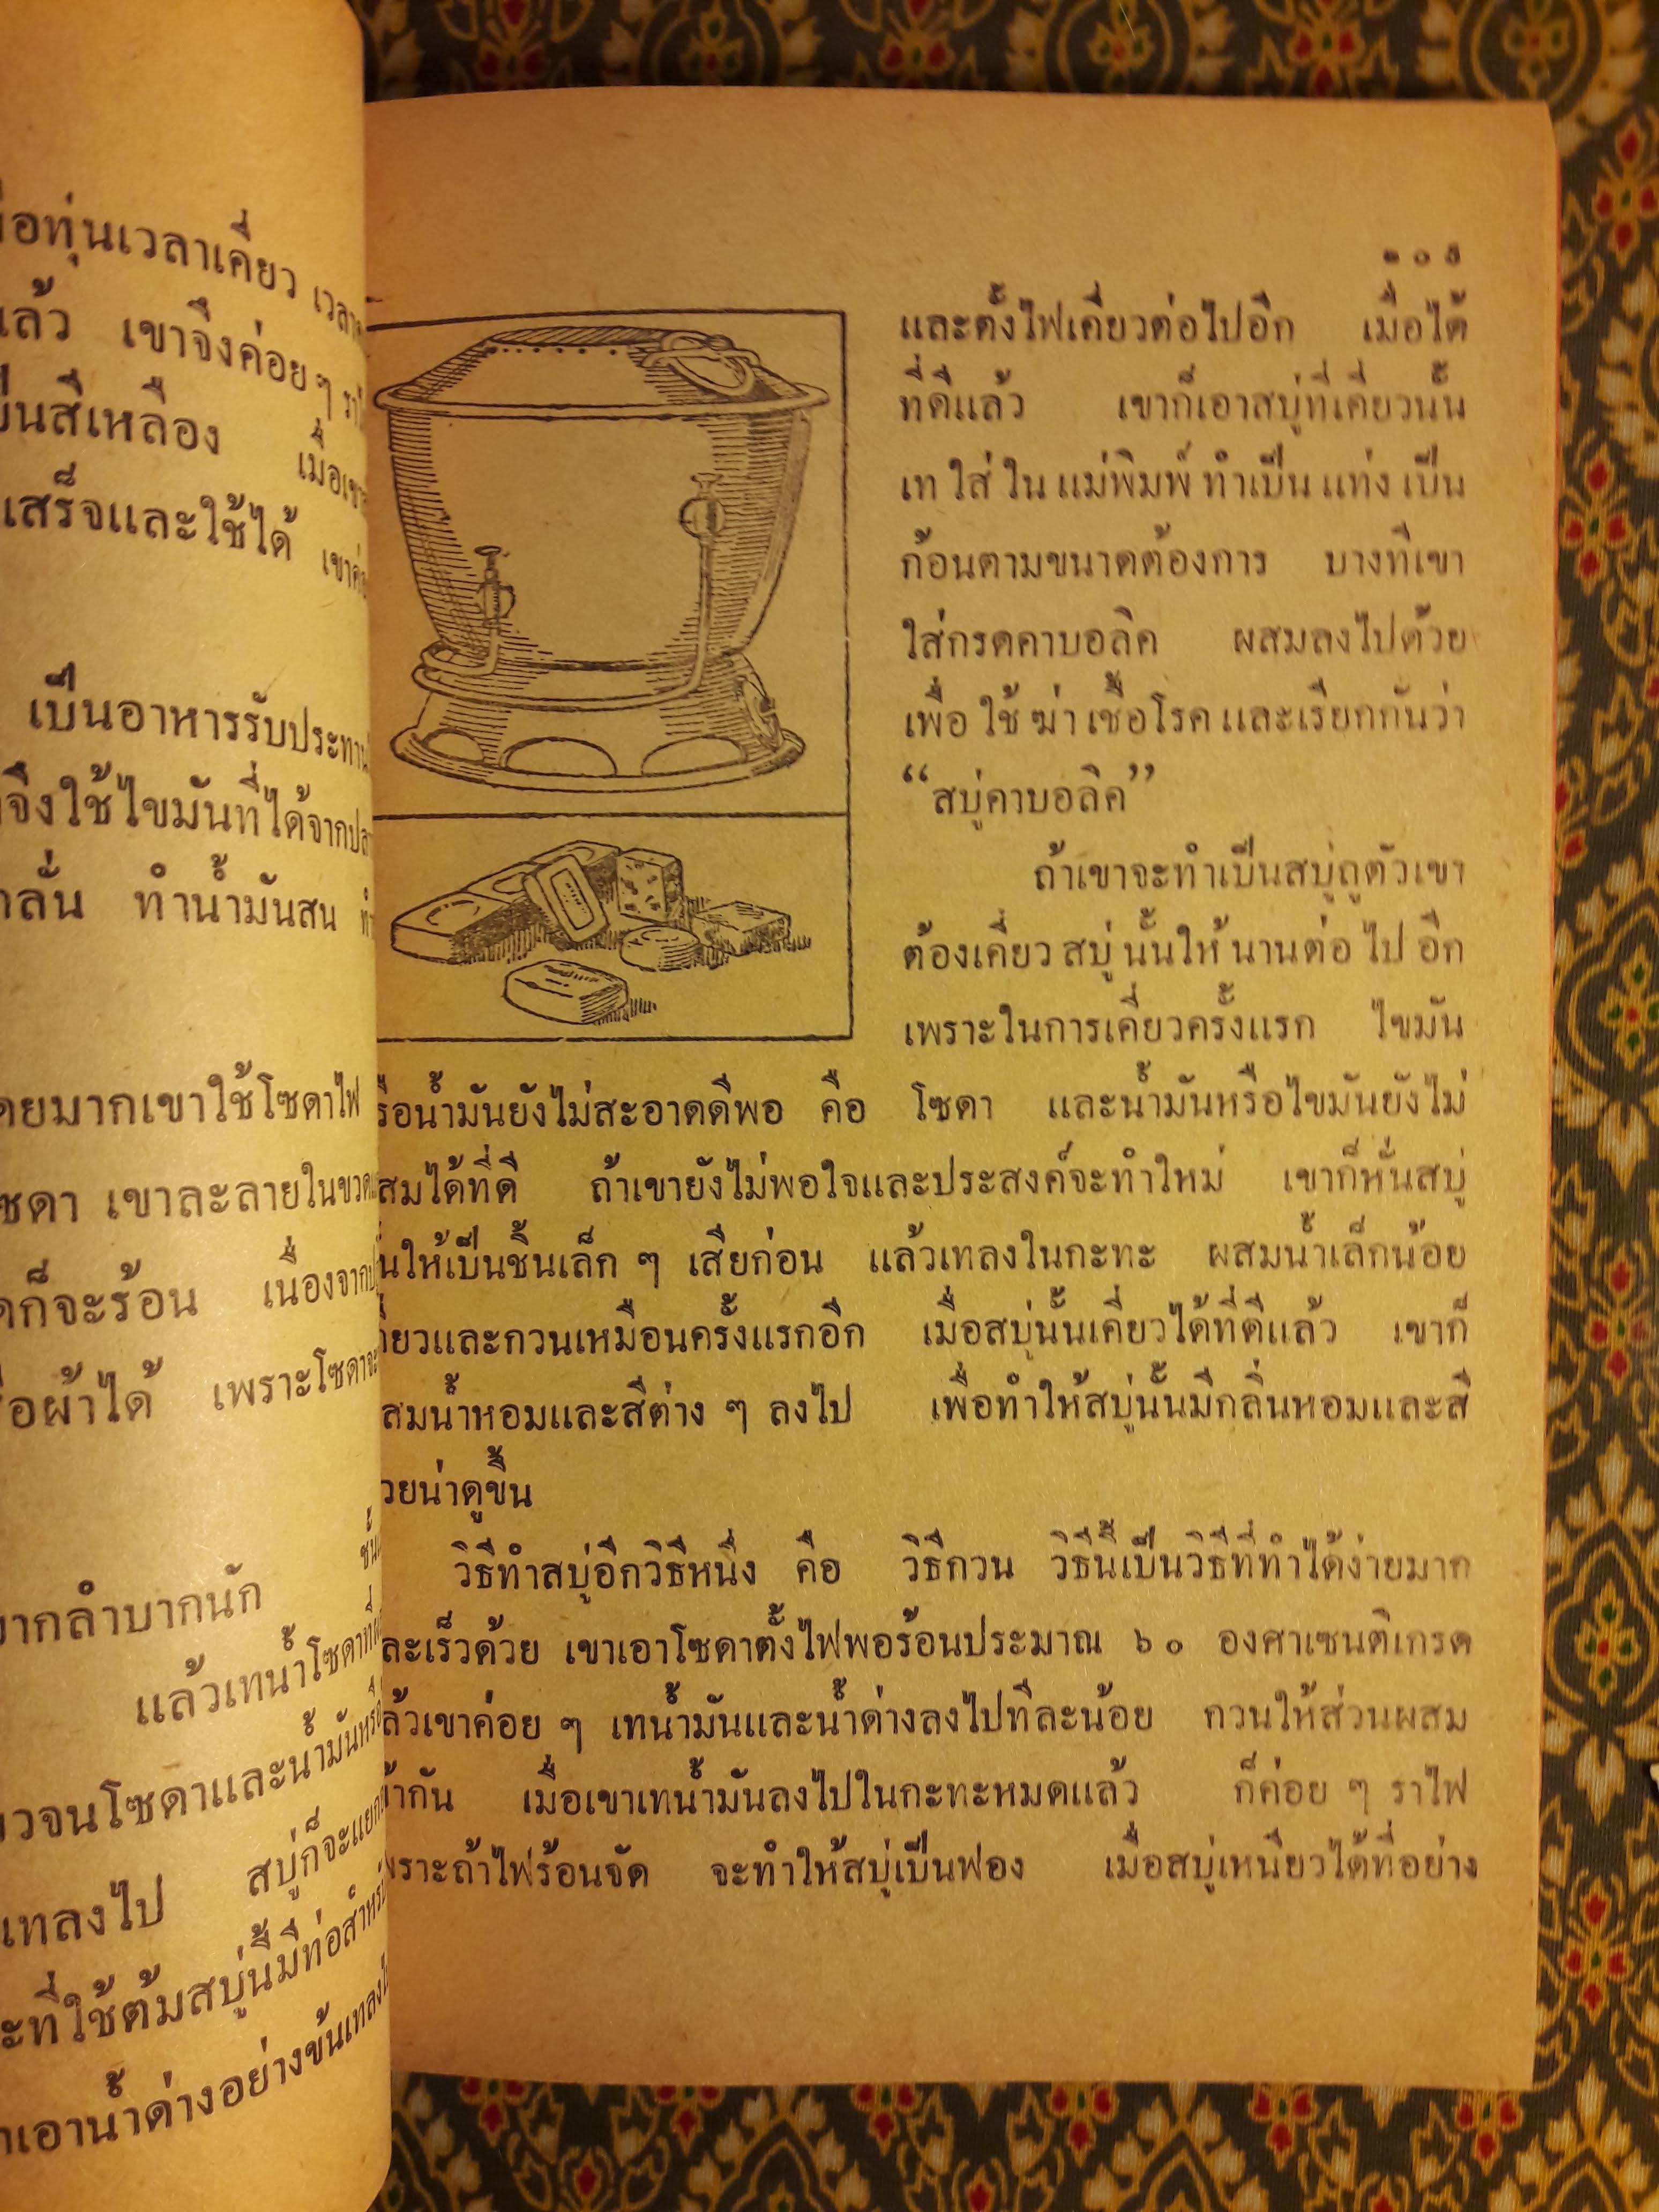 อทุ่นเวลาเคี่ยว
แล้ว เขาจึงค่อย ๆ
เป็นสีเหลือง
เสร็จและใช้ได้
เป็นอาหารรับประทาน
จึงใช้ไขมันที่ได้จากปลา
กลั่น ทำน้ำมันสน
มากเขาใช้โซดาไฟ
เขาละลายในขวด
ก็จะร้อน เนื่องจาก
ผ้าได้ เพราะโซดาจะ
ยากลำบากนัก
แล้วเทน้ำโซดาที่
จนโซดาและน้ำมันหรือ
เทลงไป สบู่ก็จะแยก
ที่ใช้ต้มสบู่นี้มีท่อสำหรับ
เอาน้ำด่างอย่างข้นเทลง
๑๐๕
และตั้งไฟเคี่ยวต่อไปอีก เมื่อได้
ที่ดีแล้ว เขาก็เอาสบู่ที่เคี่ยวนั้น
เทใส่ในแม่พิมพ์ทำเป็นแท่งเป็น
ก้อนตามขนาดต้องการ บางทีเขา
ใส่กรดคาบอลิค ผสมลงไปด้วย
เพื่อใช้ฆ่าเชื้อโรคและเรียกกันว่า
“สบู่คาบอลิค”
ถ้าเขาจะทำเป็นสบู่ถูตัวเขา
ต้องเคี่ยวสบู่นั้นให้นานต่อไปอีก
เพราะในการเคี่ยวครั้งแรก ไขมัน
รือน้ำมันยังไม่สะอาดดีพอ คือ โซดา และน้ำมันหรือไขมันยังไม่
สมได้ที่ดี ถ้าเขายังไม่พอใจและประสงค์จะทำใหม่ เขาก็หั่นสบู่
นให้เป็นชิ้นเล็ก ๆ เสียก่อน แล้วเทลงในกะทะ ผสมน้ำเล็กน้อย
คี่ยวและกวนเหมือนครั้งแรกอีก เมื่อสบู่นั้นเคี่ยวได้ที่ดีแล้ว เขาก็
สมน้ำหอมและสีต่าง ๆ ลงไป เพื่อทำให้สบู่นั้นมีกลิ่นหอมและสี
วยน่าดูขึ้น
วิธีทำสบู่อีกวิธีหนึ่ง คือ วิธีกวน วิธีนี้เป็นวิธีที่ทำได้ง่ายมาก
ละเร็วด้วย เขาเอาโซดาตั้งไฟพอร้อนประมาณ ๖๐ องศาเซนติเกรด
ล้วเขาค่อย ๆ เทน้ำมันและน้ำด่างลงไปทีละน้อย กวนให้ส่วนผสม
ข้ากัน เมื่อเขาเทน้ำมันลงไปในกะทะหมดแล้ว ก็ค่อย ๆ ราไฟ
พราะถ้าไฟร้อนจัด จะทำให้สบู่เป็นฟอง เมื่อสบู่เหนียวได้ที่อย่าง